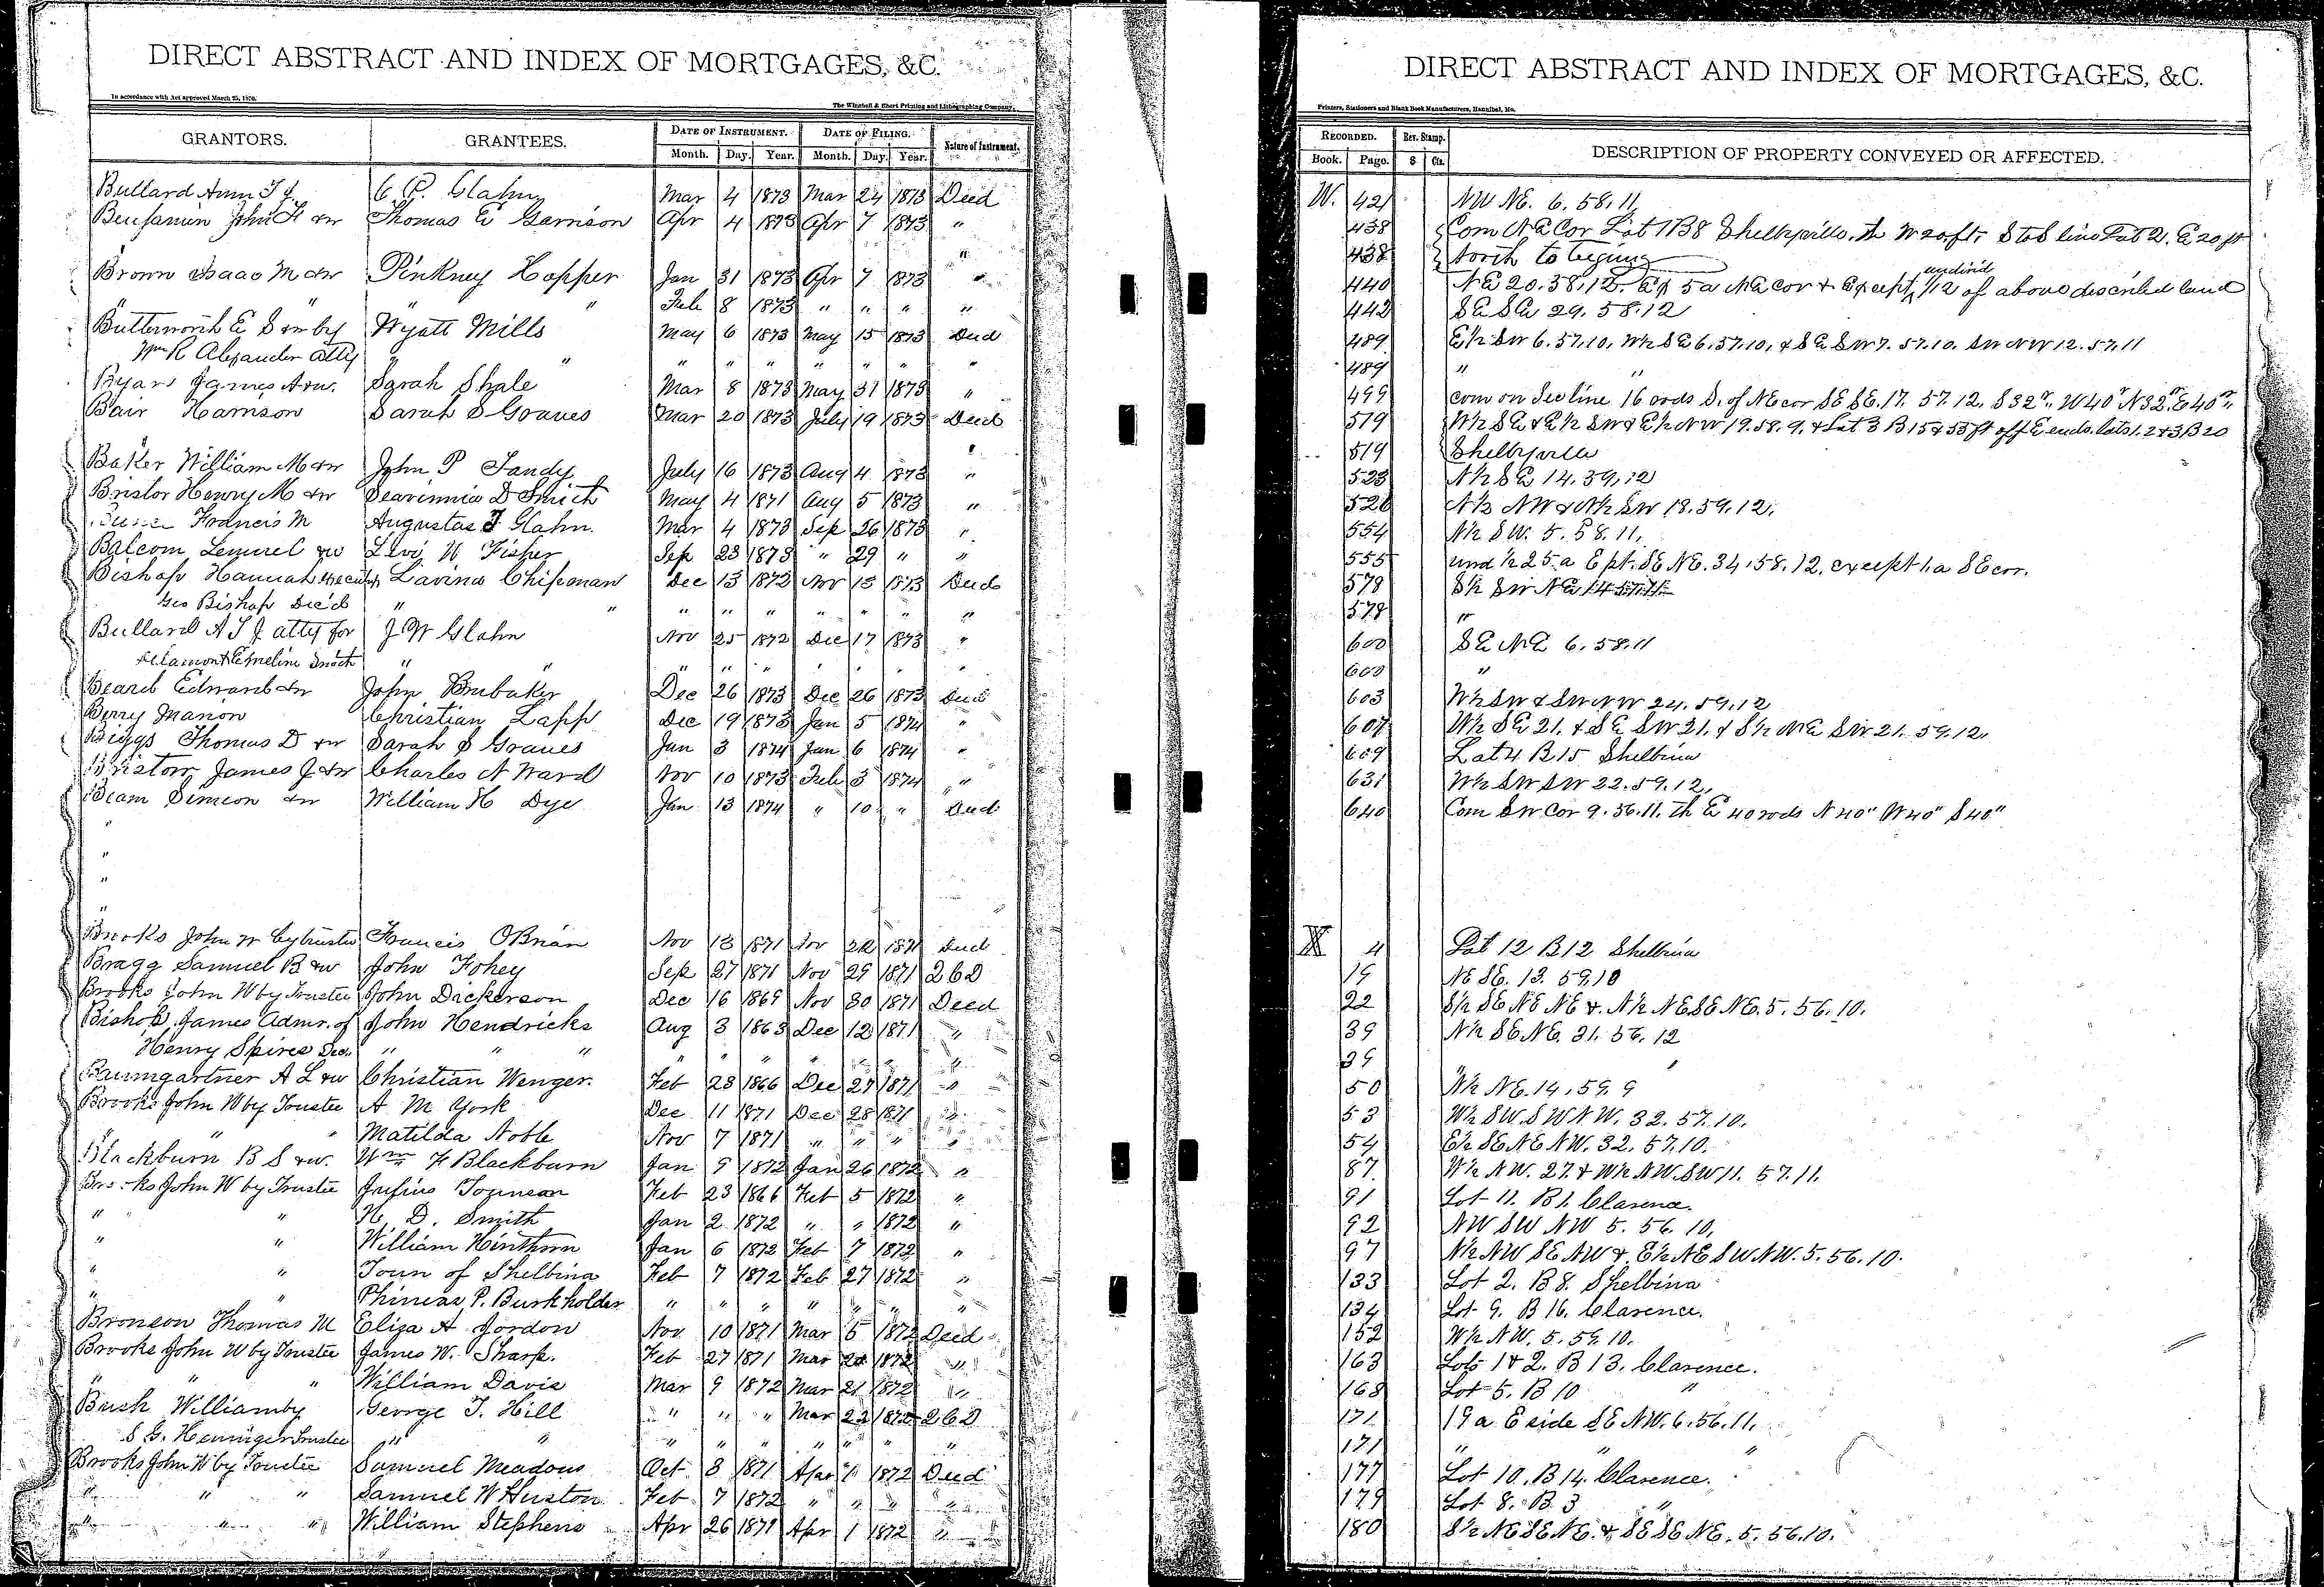 DIRECT ABSTRACT AND INDEX OF MORTGAGES, &C.
In accordance with Act approved March 25, 1870.
The Winchell & Ebert Printing and Lithographing Company,
GRANTORS. GRANTEES. DATE OF INSTRUMENT. DATE OF FILING. Nature of Instrument.
Month. Day. Year. Month. Day. Year.
Bullard Ann T J. C. P. Glahn Mar 4 1873 Mar 24 1873 Deed
Benjamin John H &w Thomas E Garrison Apr 4 1873 Apr 7 1873 "
"
Brown Isaac M &w Pinkney Hopper Jan 31 1873 Apr 7 1873 "
" " " " Feb 8 1873 " " " "
Butterworth E S &w by Wyatt Mills May 6 1873 May 15 1873 Deed
Wm R Alexander atty " " " " " " " " "
Byars James A &w. Sarah Shale Mar 8 1873 May 31 1873 "
Bair Harrison Sarah S Graves Mar 20 1873 July 19 1873 Deed
"
Baker William M &w John P Tandy July 16 1873 Aug 4 1873 "
Bristor Henry M &w D Smith May 4 1871 Aug 5 1873 "
Francis M Augustas T Glahn. Mar 4 1873 Sep 26 1873 "
Balcom Lemuel &w Levi W Fisher Sep 23 1873 " 29 " "
Bishop Hannah Lavina Chipman Dec 13 1872 Nov 13 1873 Deed
Geo Bishop Dec'd " " " " " " " " "
Bullard A T J atty for J W Glahn Nov 25 1872 Dec 17 1873 "
& Emeline " " " " " " " " "
Beard Edward &w John Brubaker Dec 26 1873 Dec 26 1873 Deed
Berry Marion Christian Lapp Dec 19 1873 Jan 5 1874 "
Biggs Thomas D &w Sarah S Graves Jan 3 1874 Jan 6 1874 "
Bristow James J &w Charles N Ward Nov 10 1873 Feb 3 1874 "
Beam Simeon &w William H Dye Jan 13 1874 " 10 " Deed
"
"
"
Brooks John W by trustee Francis OBrian Nov 13 1871 Nov 22 1871 Deed
Bragg Samuel B &w John Fohey Sep 27 1871 Nov 29 1871 2 C D
Brooks John W by Trustee John Dickerson Dec 16 1869 Nov 30 1871 Deed
Bishop, James Admr. of John Hendricks Aug 3 1863 Dec 12 1871 "
Henry Spires Dec. " " " " " " " " " "
Baumgartner A L &w Christian Wenger. Feb 23 1866 Dec 27 1871 "
Brooks John W by Trustee A M York Dec 11 1871 Dec 28 1871 "
" " " Matilda Noble Nov 7 1871 " " " "
Blackburn B S &w. Wm F Blackburn Jan 9 1872 Jan 26 1872 "
Brooks John W by Trustee Feb 23 1866 Feb 5 1872 "
" " H. D. Smith Jan 2 1872 " " 1872 "
" " William Hinthorn Jan 6 1872 Feb 7 1872 "
" " Town of Shelbina Feb 7 1872 Feb 27 1872 "
" " Phineas P. Burkholder " " " " " " "
Bronson Thomas M Eliza A Jordon Nov. 10 1871 Mar 5 1872 Deed
Brooks John W by Trustee James W. Sharp. Feb 27 1871 Mar 20 1872 "
" " " William Davis Mar 9 1872 Mar 21 1872 "
Bush William by George T. Hill " " " Mar 22 1872 2 C D
S G. Henninger Trustee " " " " " " " " "
Brooks John W by Trustee Samuel Meadows Oct 3 1871 Apr 1 1872 Deed
" " " Samuel W Huston Feb 7 1872 " " " "
" " " William Stephens Apr 26 1871 Apr 1 1872 "
DIRECT ABSTRACT AND INDEX OF MORTGAGES, &C.
Printers, Stationers and Blank Book Manufacturers, Hannibal, Mo.
RECORDED. Rev. Stamp. DESCRIPTION OF PROPERTY CONVEYED OR AFFECTED.
Book. Page. $ Cts.
W. 421 NW NE. 6. 58. 11.
438 Com N E Cor Lot 1 B 8 Shelbyville. th W 20 ft. S to S line Lot 21. E 20 ft
438 North to begining
440 NE 20. 58. 12. Ex 5 a NE cor & Except undivid 1/12 of above described land
442 SE SE 29. 58. 12
489 E½ SW 6. 57. 10, W½ SE 6. 57. 10, & SE SW 7. 57. 10. SW NW 12. 57. 11
489 " "
499 com on Sec line 16 rods S. of NE cor SE SE. 17. 57. 12. S 32 r. W 40 r N 32 r E 40 r.
519 W½ SE & E½ SW & E½ NW 19. 58. 9. & Lot 3 B 15 & 53 ft off E ends. lots 1. 2 & 3 B 20
519 Shelbyville
523 N½ SE 14. 59. 12
526 N½ NW & N½ SW 18. 59. 12.
554 N½ SW. 5. 58. 11.
555 und ½ 25 a E pt. SE NE. 34. 58. 12. except 1. a SE cor.
578 S½ SW NE 14 57. 11
578 "
600 SE NE 6. 58. 11
600 "
603 W½ SW & SW NW 24. 59. 12
607 W½ SE 21. & SE SW 21. & S½ NE SW 21. 59. 12.
609 Lot 4 B 15 Shelbina
631 W½ SW SW 22. 59. 12.
640 Com SW Cor 9. 56. 11. th E 40 rods N 40" W 40" S 40"
X 4 Lot 12 B 12 Shelbina
19 NE SE. 13. 59. 10
22 S½ SE NE NE &. N½ NE SE NE. 5. 56. 10.
39 N½ SE NE. 31. 56. 12
39 "
50 W½ NE. 14. 59. 9
53 W½ SW. SW NW. 32. 57. 10.
54 E½ SE NE NW. 32. 57. 10.
87 W½ NW. 27. & W½ NW. SW 11. 57. 11.
91 Lot 11. B 1. Clarence.
92 NW SW NW 5. 56. 10,
97 N½ NW SE NW &. E½ NE SW NW. 5. 56. 10.
133 Lot 2. B 8. Shelbina
134 Lot 9. B 16. Clarence.
152 W½ NW. 5. 59. 10.
163 Lots 1 & 2. B 13. Clarence.
168 Lot 5. B 10 "
171 19 a E side SE NW. 6. 56. 11.
171 " " "
177 Lot 10. B 14. Clarence.
179 Lot 8. B 3 "
180 S½ NE SE NE. & SE SE NE. 5. 56. 10.